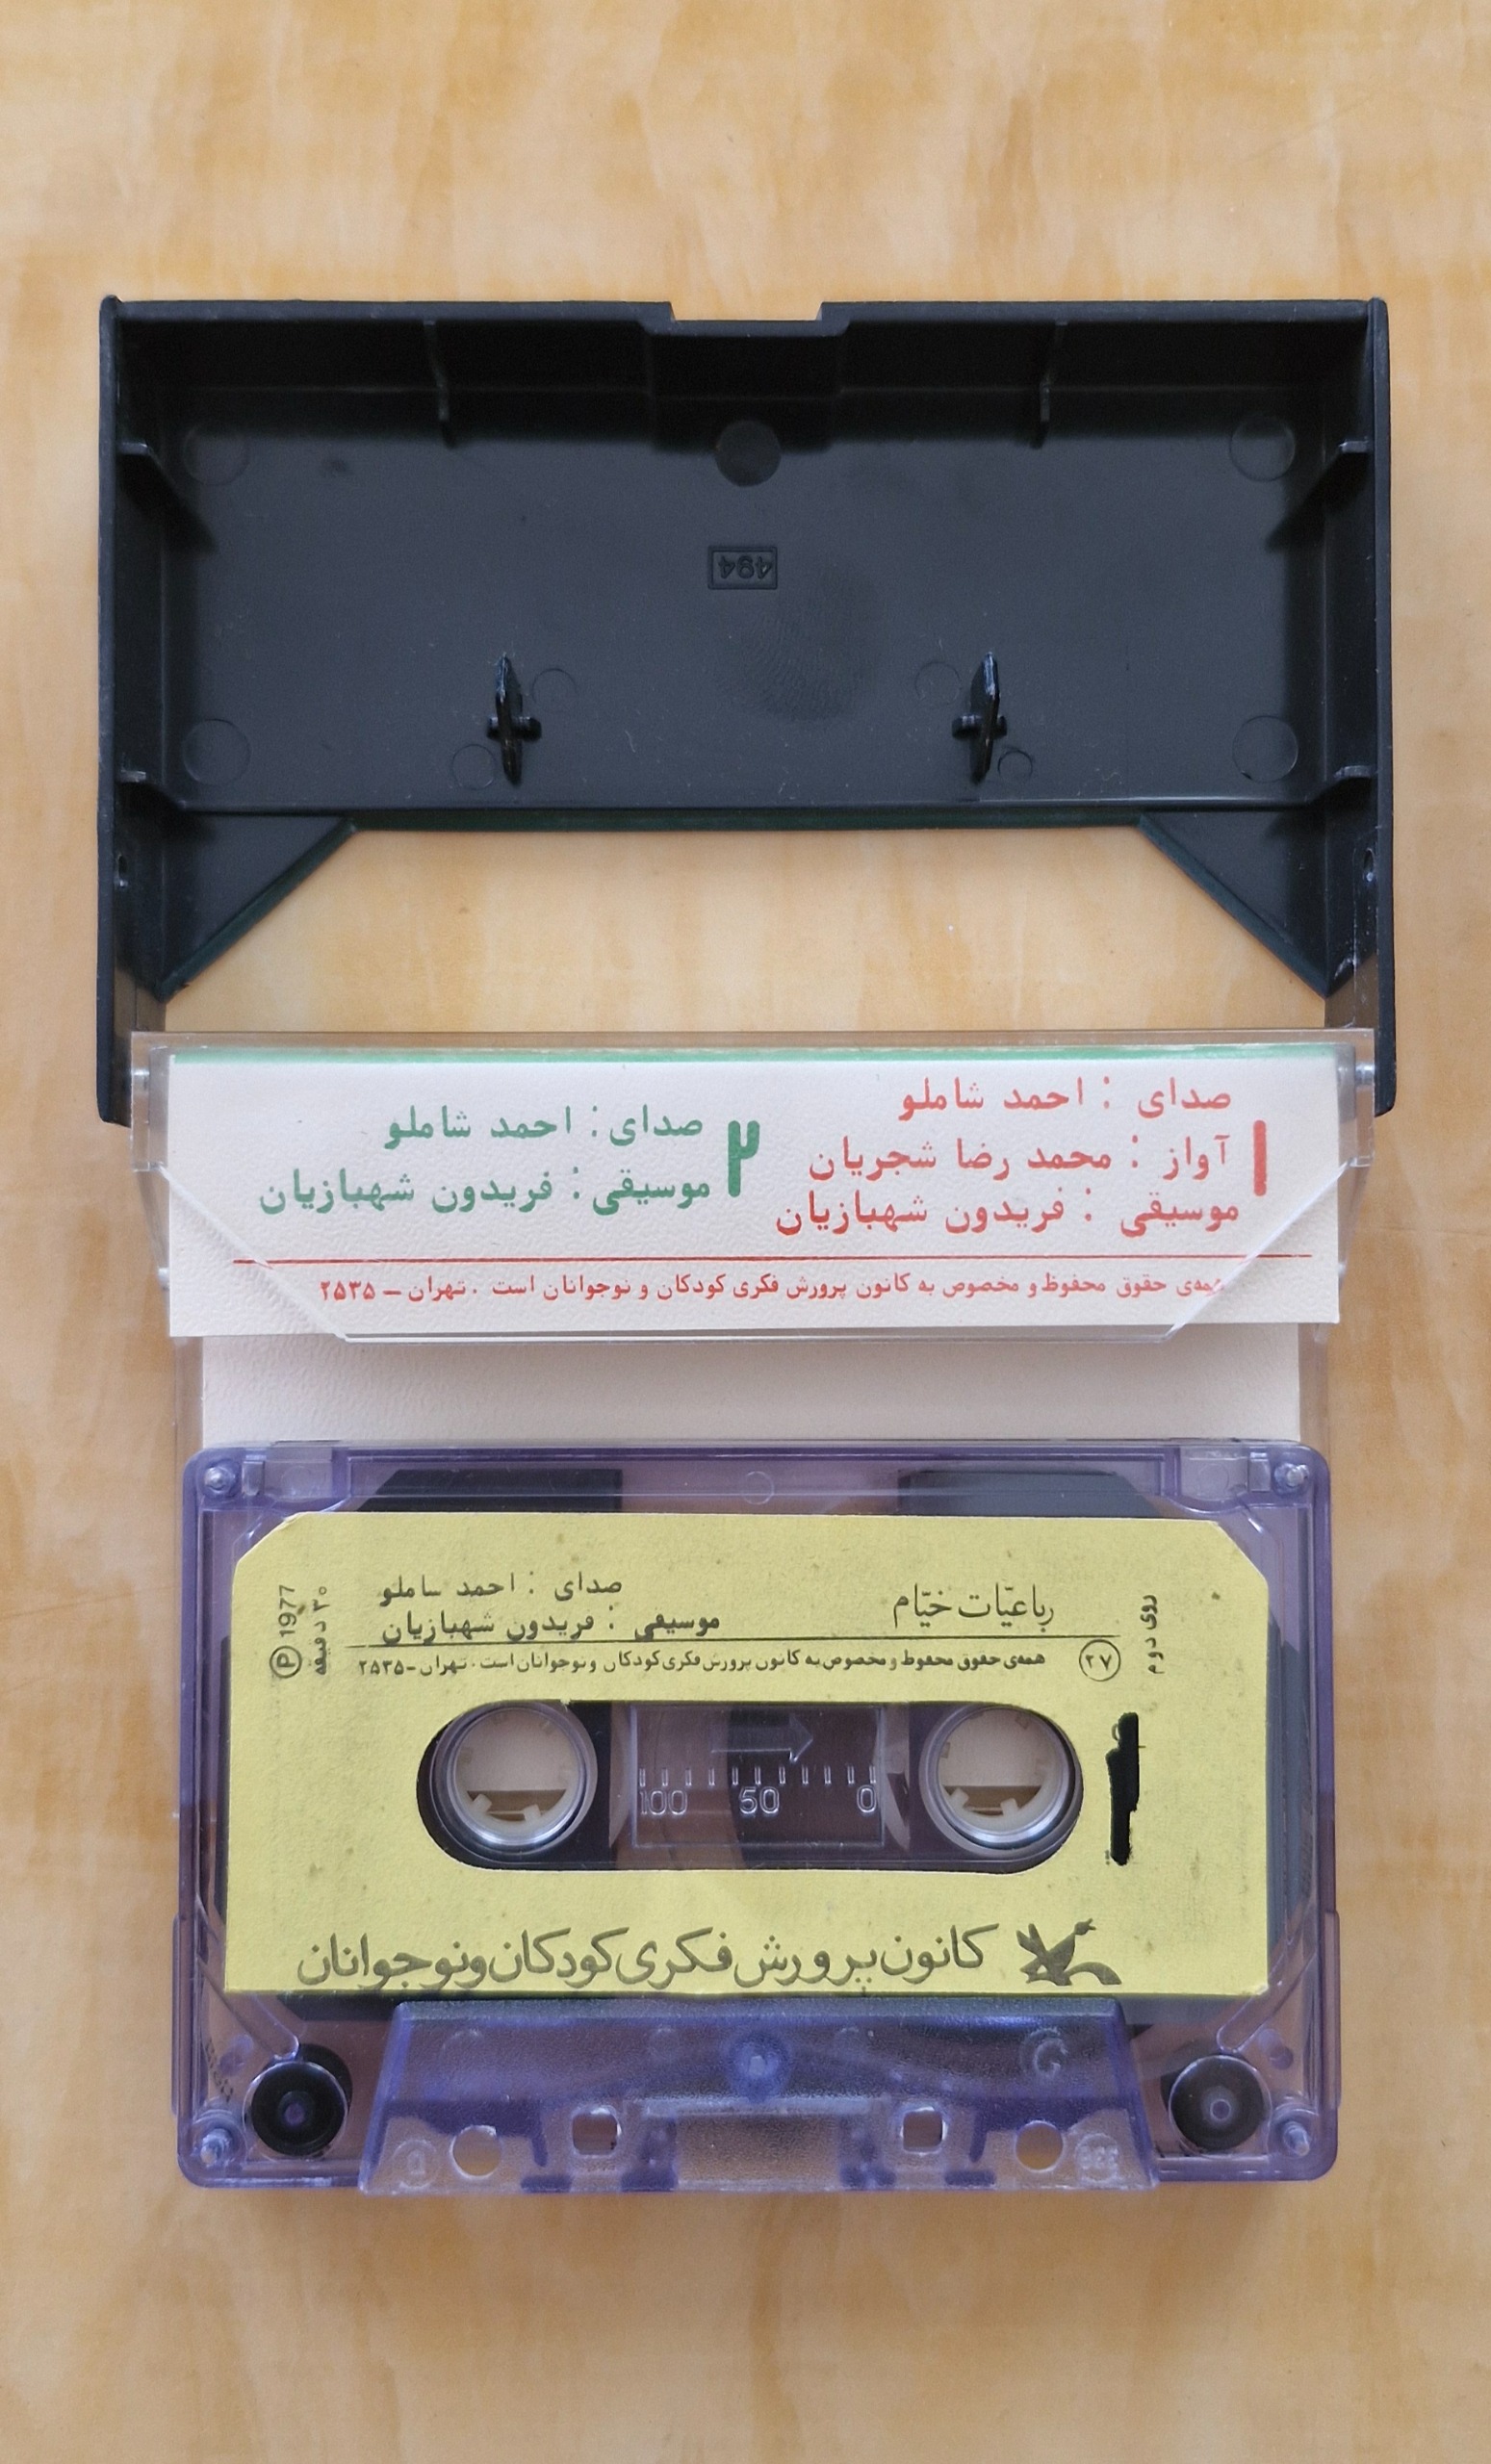 494
صدای : احمد شاملو
۱ آواز : محمد رضا شجریان
موسیقی : فریدون شهبازیان
۲ صدای : احمد شاملو
موسیقی : فریدون شهبازیان
همه‌ی حقوق محفوظ و مخصوص به کانون پرورش فکری کودکان و نوجوانان است . تهران – ۲۵۳۵
روی دوم
رباعیّات خیّام
صدای : احمد ساملو
موسیقی : فریدون شهبازیان
۲۷ همه‌ی حقوق محفوظ و مخصوص به کانون پرورش فکری کودکان و نوجوانان است . تهران -۲۵۳۵
۳۰ دقیقه
Ⓟ 1977
100 50 0
کانون پرورش فکری کودکان و نوجوانان